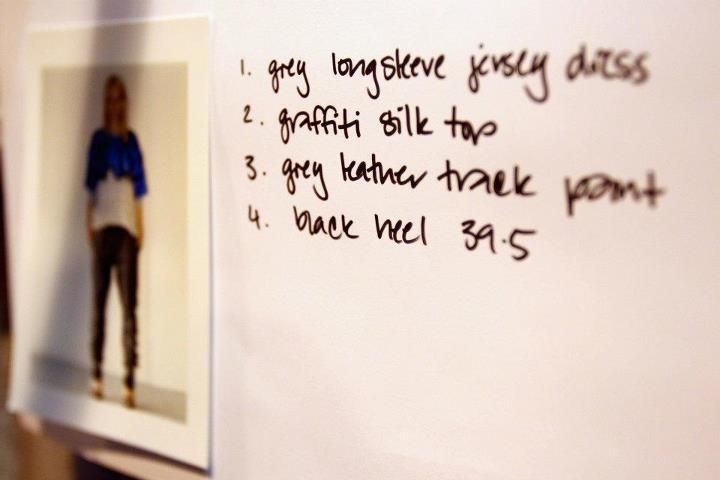 1. grey longsleeve jersey dress
2. graffiti silk top
3. grey leather track pant
4. black heel 39.5